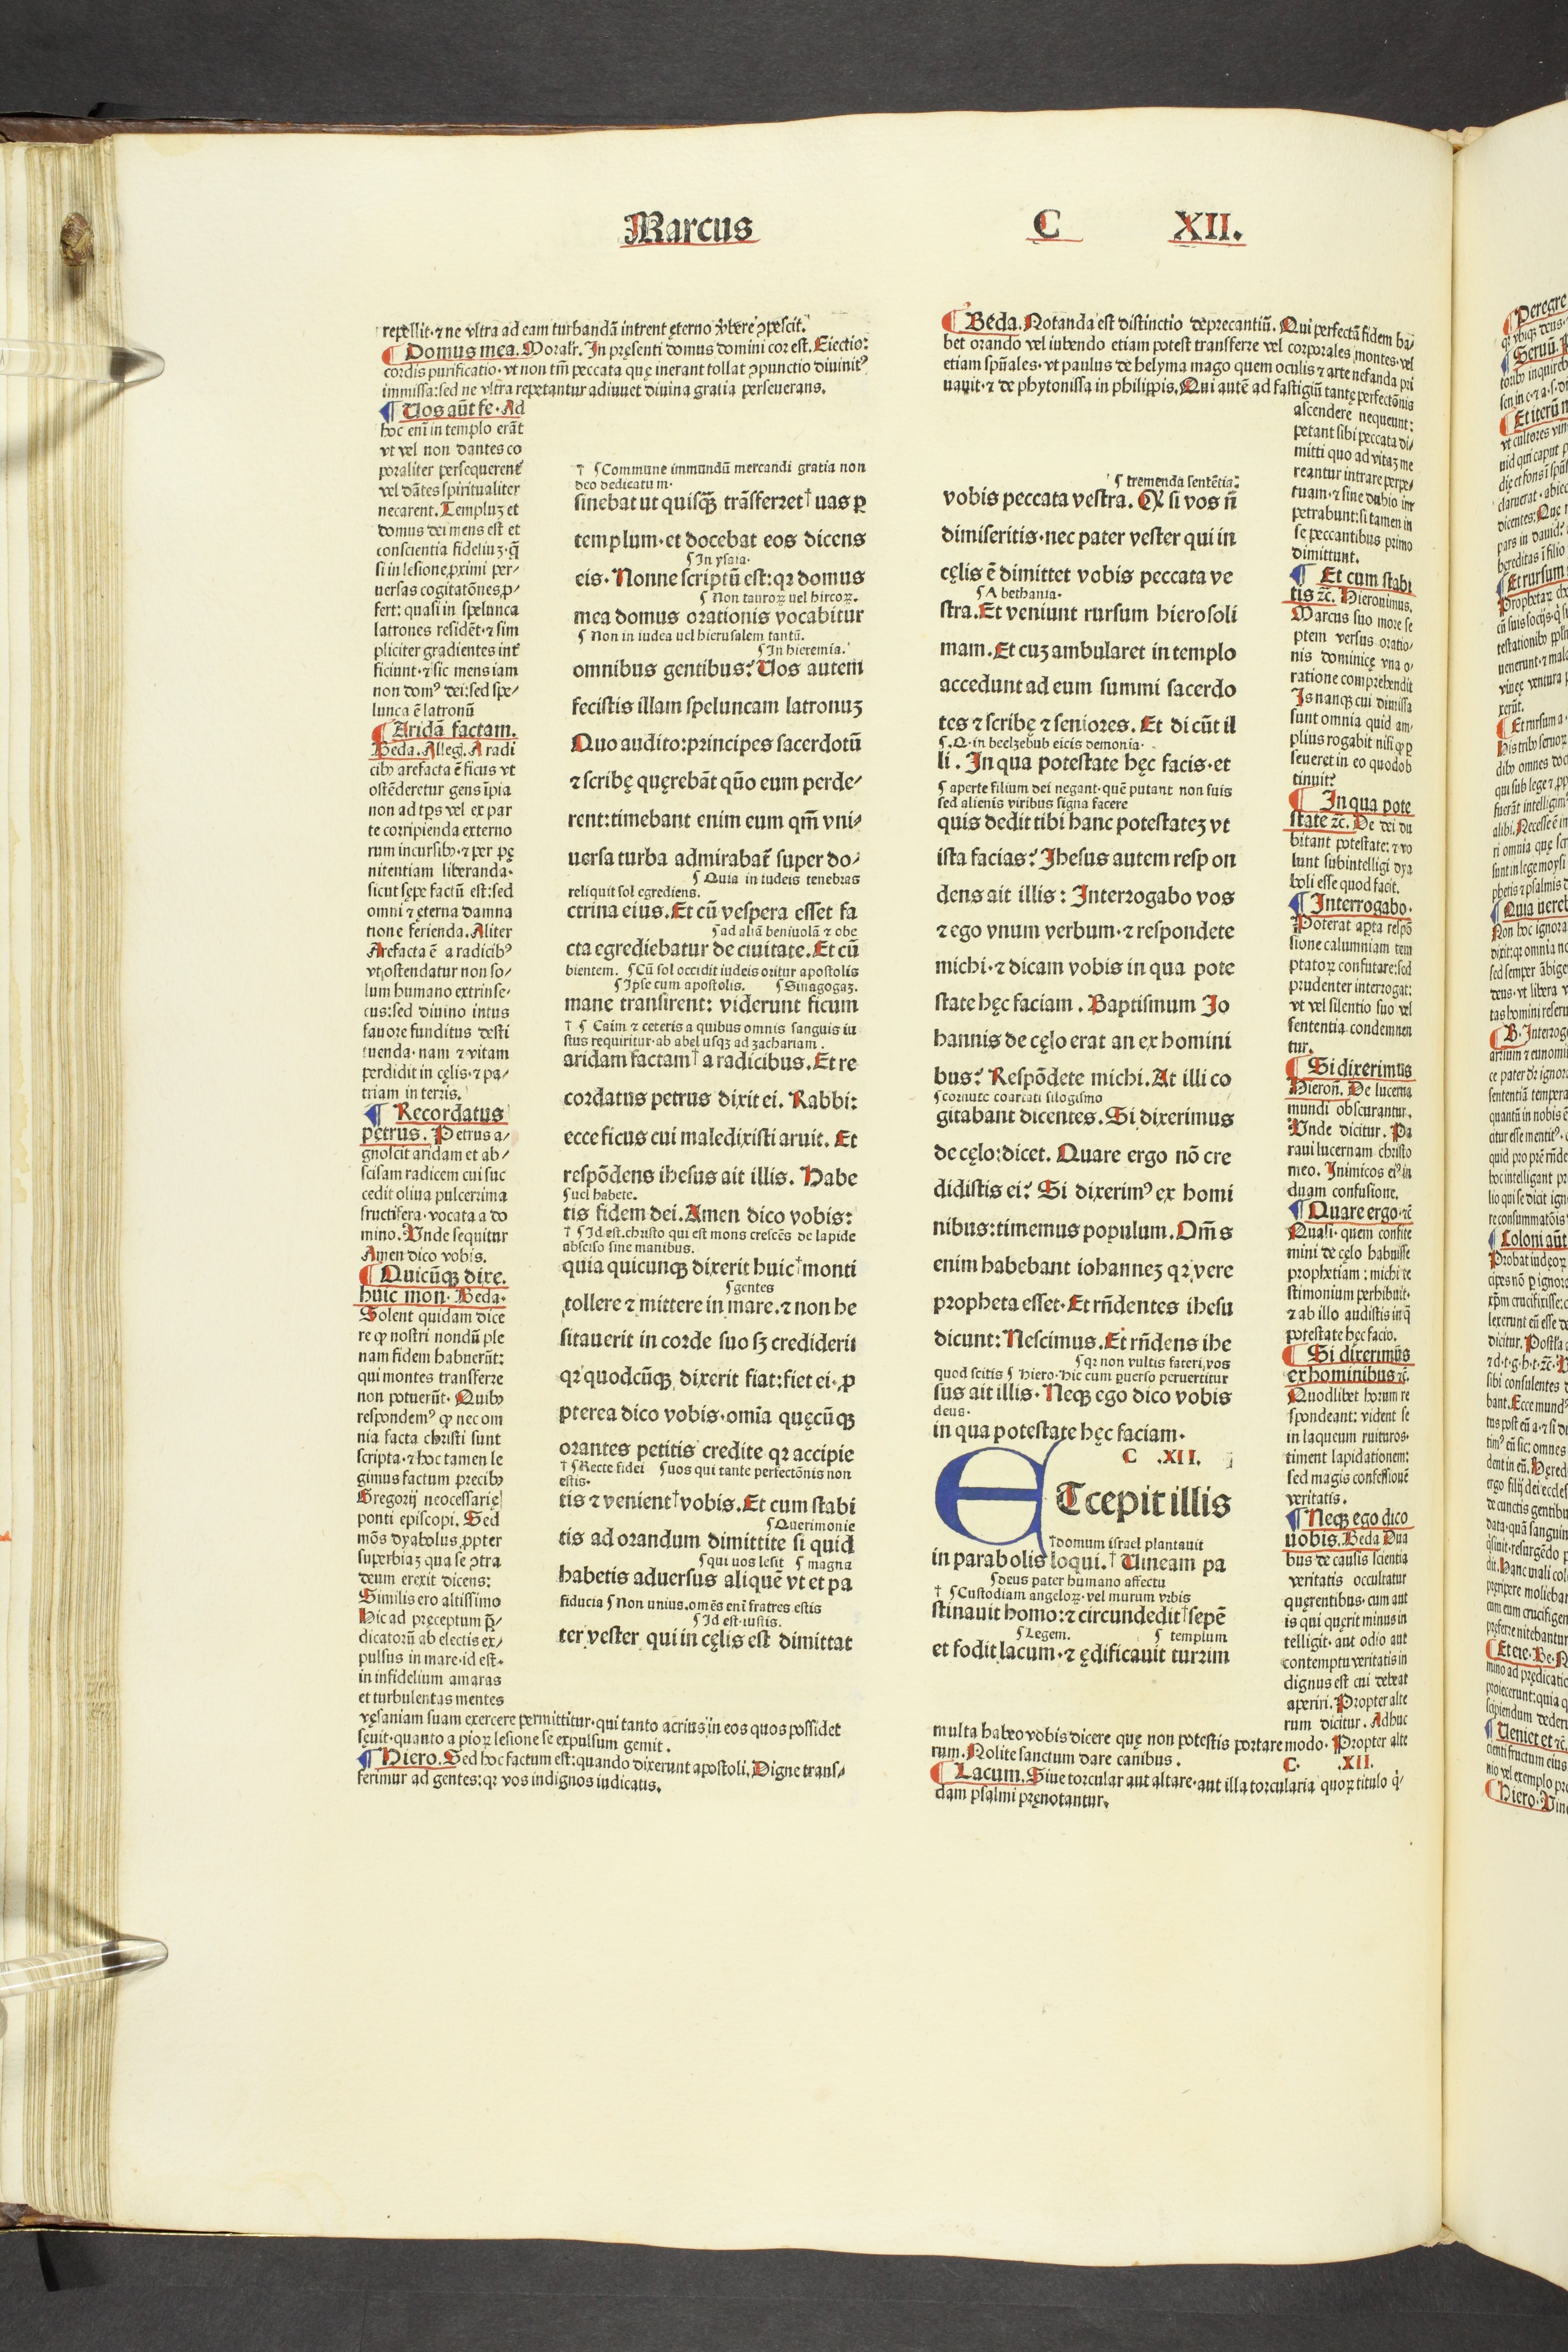 Marcus C XII.
repellit·⁊ ne vltra ad eam turbandā intrent ęterno ꝟbere ꝯpescit.
¶ Domus mea. Moralr̄. In pręsenti domus domini cor est. Eiectio:
cordis purificatio· vt non tm̄ peccata quę inerant tollat ꝯpunctio diuinitꝰ
immissa: sed ne vltra repetantur adiuuet diuina gratia perseuerans.
¶ Uos aūt fe· Ad
hoc enī in templo erāt
vt vel non dantes co
poraliter persequerent̄
vel dātes spiritualiter
necarent. Templuꝫ et
domus dei mens est et
conscientia fideliuꝫ· q̄
si in lesione ꝓximi per-
uersas cogitatōnes ꝓ-
fert: quasi in spelunca
latrones residēt·⁊ sim
pliciter gradientes int̄
ficiunt·⁊ sic mens iam
non domꝰ dei: sed spe-
lunca ē latronū
¶ Aridā factam.
Beda. Alleḡ. A radi
cibꝰ arefacta ē ficus vt
ostēderetur gens īpia
non ad tp̄s vel ex par
te corripienda externo
rum incursibꝰ·⁊ per pę
nitentiam liberanda·
sicut sępe factū est: sed
omni ⁊ eterna damna
tione ferienda. Aliter
Arefacta ē a radicibꝰ
vt ostendatur non so-
lum humano extrinse-
cus: sed diuino intus
fauore funditus desti
tuenda· nam ⁊ vitam
perdidit in cęlis·⁊ pa-
triam in terris.
¶ Recordatus
petrus. Petrus a-
gnoscit aridam et ab-
scisam radicem cui suc
cedit oliua pulcerrima
fructifera· vocata a do
mino. Unde sequitur
Amen dico vobis.
¶ Quicūqꝫ dixe.
huic mon· Beda·
Solent quidam dice
re qꝫ nostri nondū ple
nam fidem habuerūt:
qui montes transferre
non potuerūt· Quibꝰ
respondemꝰ qꝫ nec om
nia facta christi sunt
scripta·⁊ hoc tamen le
gimus factum precibꝰ
Gregorij neocessarię
ponti episcopi. Sed
mōs dyabolus ꝓpter
superbiaꝫ qua se ꝯtra
deum erexit dicens:
Similis ero altissimo
Hic ad pręceptum p̄-
dicatorū ab electis ex-
pulsus in mare· id est·
in infidelium amaras
et turbulentas mentes
vęsaniam suam exercere permittitur· qui tanto acrius in eos quos possidet
sęuit· quanto a pioꝝ lesione se expulsum gemit.
¶ Hiero. Sed hoc factum est: quando dixerunt apostoli, Digne trans-
ferimur ad gentes: qꝛ vos indignos iudicatis.
† ¶ Commune immundū mercandi gratia non
deo dedicatum·
sinebat ut quisqꝫ trāsferret† uas ꝑ
templum· et docebat eos dicens
¶ In ysaia·
eis· Nonne scriptū est: qꝛ domus
¶ Non tauroꝝ uel hircoꝝ.
mea domus orationis vocabitur
¶ Non in iudea uel hierusalem tantū.
¶ In hieremia.
omnibus gentibus? Uos autem
fecistis illam speluncam latronuꝫ
Quo audito: principes sacerdotū
⁊ scribę quęrebāt qūo eum perde-
rent: timebant enim eum qm̄ vni-
uersa turba admirabat̄ super do-
¶ Quia in iudeis tenebras
reliquit sol egrediens.
ctrina eius. Et cū vespera esset fa
¶ ad aliā beniuolā ⁊ obe
cta egrediebatur de ciuitate. Et cū
bientem. ¶ Cū sol occidit iudeis oritur apostolis
¶ Ipse cum apostolis. ¶ Sinagogaꝫ.
mane transirent: viderunt ficum
† ¶ Caim ⁊ ceteris a quibus omnis sanguis iu
stus requiritur· ab abel usqꝫ ad zachariam.
aridam factam† a radicibus. Et re
cordatus petrus dixit ei. Rabbi:
ecce ficus cui maledixisti aruit. Et
respōdens ihesus ait illis. Habe
¶ uel habete.
tis fidem dei. Amen dico vobis:
† ¶ Id est. christo qui est mons crescēs de lapide
absciso sine manibus.
quia quicunqꝫ dixerit huic† monti
¶ gentes
tollere ⁊ mittere in mare·⁊ non he
sitauerit in corde suo sꝫ crediderit
qꝛ quodcūqꝫ dixerit fiat: fiet ei· ꝓ
pterea dico vobis· omīa quęcūqꝫ
orantes petitis credite qꝛ accipie
† ¶ Recte fidei ¶ uos qui tante perfectōnis non
estis·
tis ⁊ venient† vobis. Et cum stabi
¶ Querimonie
tis ad orandum dimittite si quid
¶ qui uos lesit ¶ magna
habetis aduersus aliquē vt et pa
fiducia ¶ Non unius. omēs enī fratres estis
¶ Id est· iustis.
ter vester qui in cęlis est dimittat
¶ Beda. Notanda est distinctio deprecantiū. Qui perfectā fidem ha-
bet orando vel iubendo etiam potest transferre vel corporales montes· vel
etiam spūales· vt paulus de helyma mago quem oculis ⁊ arte nefanda pri
uauit·⁊ de phytonissa in philippis. Qui autē ad fastigiū tantę perfectōnis
ascendere nequeunt:
petant sibi peccata di-
mitti quo ad vitaꝫ me
reantur intrare perpe-
tuam·⁊ sine dubio im
petrabunt: si tamen in
se peccantibus primo
dimittunt.
¶ Et cum stabi
tis ⁊c̄. Hieronimus.
Marcus suo more se
ptem versus oratio-
nis dominicę vna o-
ratione comprehendit
Is nanqꝫ cui dimissa
sunt omnia quid am-
plius rogabit nisi qꝫ ꝑ
seueret in eo quod ob
tinuit?
¶ In qua pote
state ⁊c̄. De dei du
bitant potestate: ⁊ vo
lunt subintelligi dya
boli esse quod facit.
¶ Interrogabo·
Poterat apta respō
sione calumniam tem
ptatoꝝ confutare: sed
prudenter interrogat:
vt vel silentio suo vel
sententia condemnen
tur.
¶ Si dixerimus
Hieron̄. De lucerna
mundi obscurantur.
Unde dicitur. Pa
raui lucernam christo
meo. Inimicos eiꝰ in
duam confusione.
¶ Quare ergo·⁊c̄
Quasi· quem confite
mini de cęlo habuisse
prophetiam: michi te
stimonium perhibuit·
⁊ ab illo audistis in q̄
potestate hęc facio.
¶ Si dixerimus
ex hominibus ⁊c̄.
Quodlibet horum re
spondeant: vident se
in laqueum ruituros·
timent lapidationem:
sed magis confessionē
veritatis.
¶ Neqꝫ ego dico
uobis. Beda Dua
bus de causis scientia
veritatis occultatur
quęrentibus· cum aut
is qui quęrit minus in
telligit· aut odio aut
contemptu veritatis in
dignus est cui debeat
aperiri. Propter alte
rum dicitur. Adhuc
multa habeo vobis dicere quę non potestis portare modo· Propter alte
rum. Nolite sanctum dare canibus. C· .XII.
¶ Lacum. Siue torcular aut altare· aut illa torcularia quoꝝ titulo q̇-
dam psalmi pręnotantur.
¶ tremenda sentētia:
vobis peccata vestra. Qꝫ si vos n̄
dimiseritis· nec pater vester qui in
cęlis ē dimittet vobis peccata ve
¶ A bethania·
stra. Et veniunt rursum hierosoli
mam. Et cuꝫ ambularet in templo
accedunt ad eum summi sacerdo
tes ⁊ scribę ⁊ seniores. Et dicūt il
¶. Q· in beelzebub eicis demonia·
li. In qua potestate hęc facis· et
¶ aperte filium dei negant· quē putant non suis
sed alienis viribus signa facere
quis dedit tibi hanc potestateꝫ vt
ista facias? Ihesus autem respon
dens ait illis: Interrogabo vos
⁊ ego vnum verbum·⁊ respondete
michi·⁊ dicam vobis in qua pote
state hęc faciam. Baptismum Jo
hannis de cęlo erat an ex homini
bus? Respōdete michi. At illi co
¶ cornuto coartati silogismo
gitabant dicentes. Si dixerimus
de cęlo: dicet. Quare ergo nō cre
didistis ei? Si dixerimꝰ ex homi
nibus: timemus populum. Om̄s
enim habebant iohanneꝫ qꝛ vere
propheta esset· Et rn̄dentes ihesu
dicunt: Nescimus. Et rn̄dens ihe
¶ qꝛ non vultis fateri, vos
quod scitis ¶ hiero· hic cum ꝑuerso peruertitur
sus ait illis· Neqꝫ ego dico vobis
deus·
in qua potestate hęc faciam·
C .XII.
ETcepit illis
† domum israel plantauit
in parabolis loqui.† Uineam pa
¶ deus pater humano affectu
† ¶ Custodiam angeloꝝ· vel murum vrbis
stinauit homo: ⁊ circundedit† sepē
¶ Legem. ¶ templum
et fodit lacum·⁊ ędificauit turrim